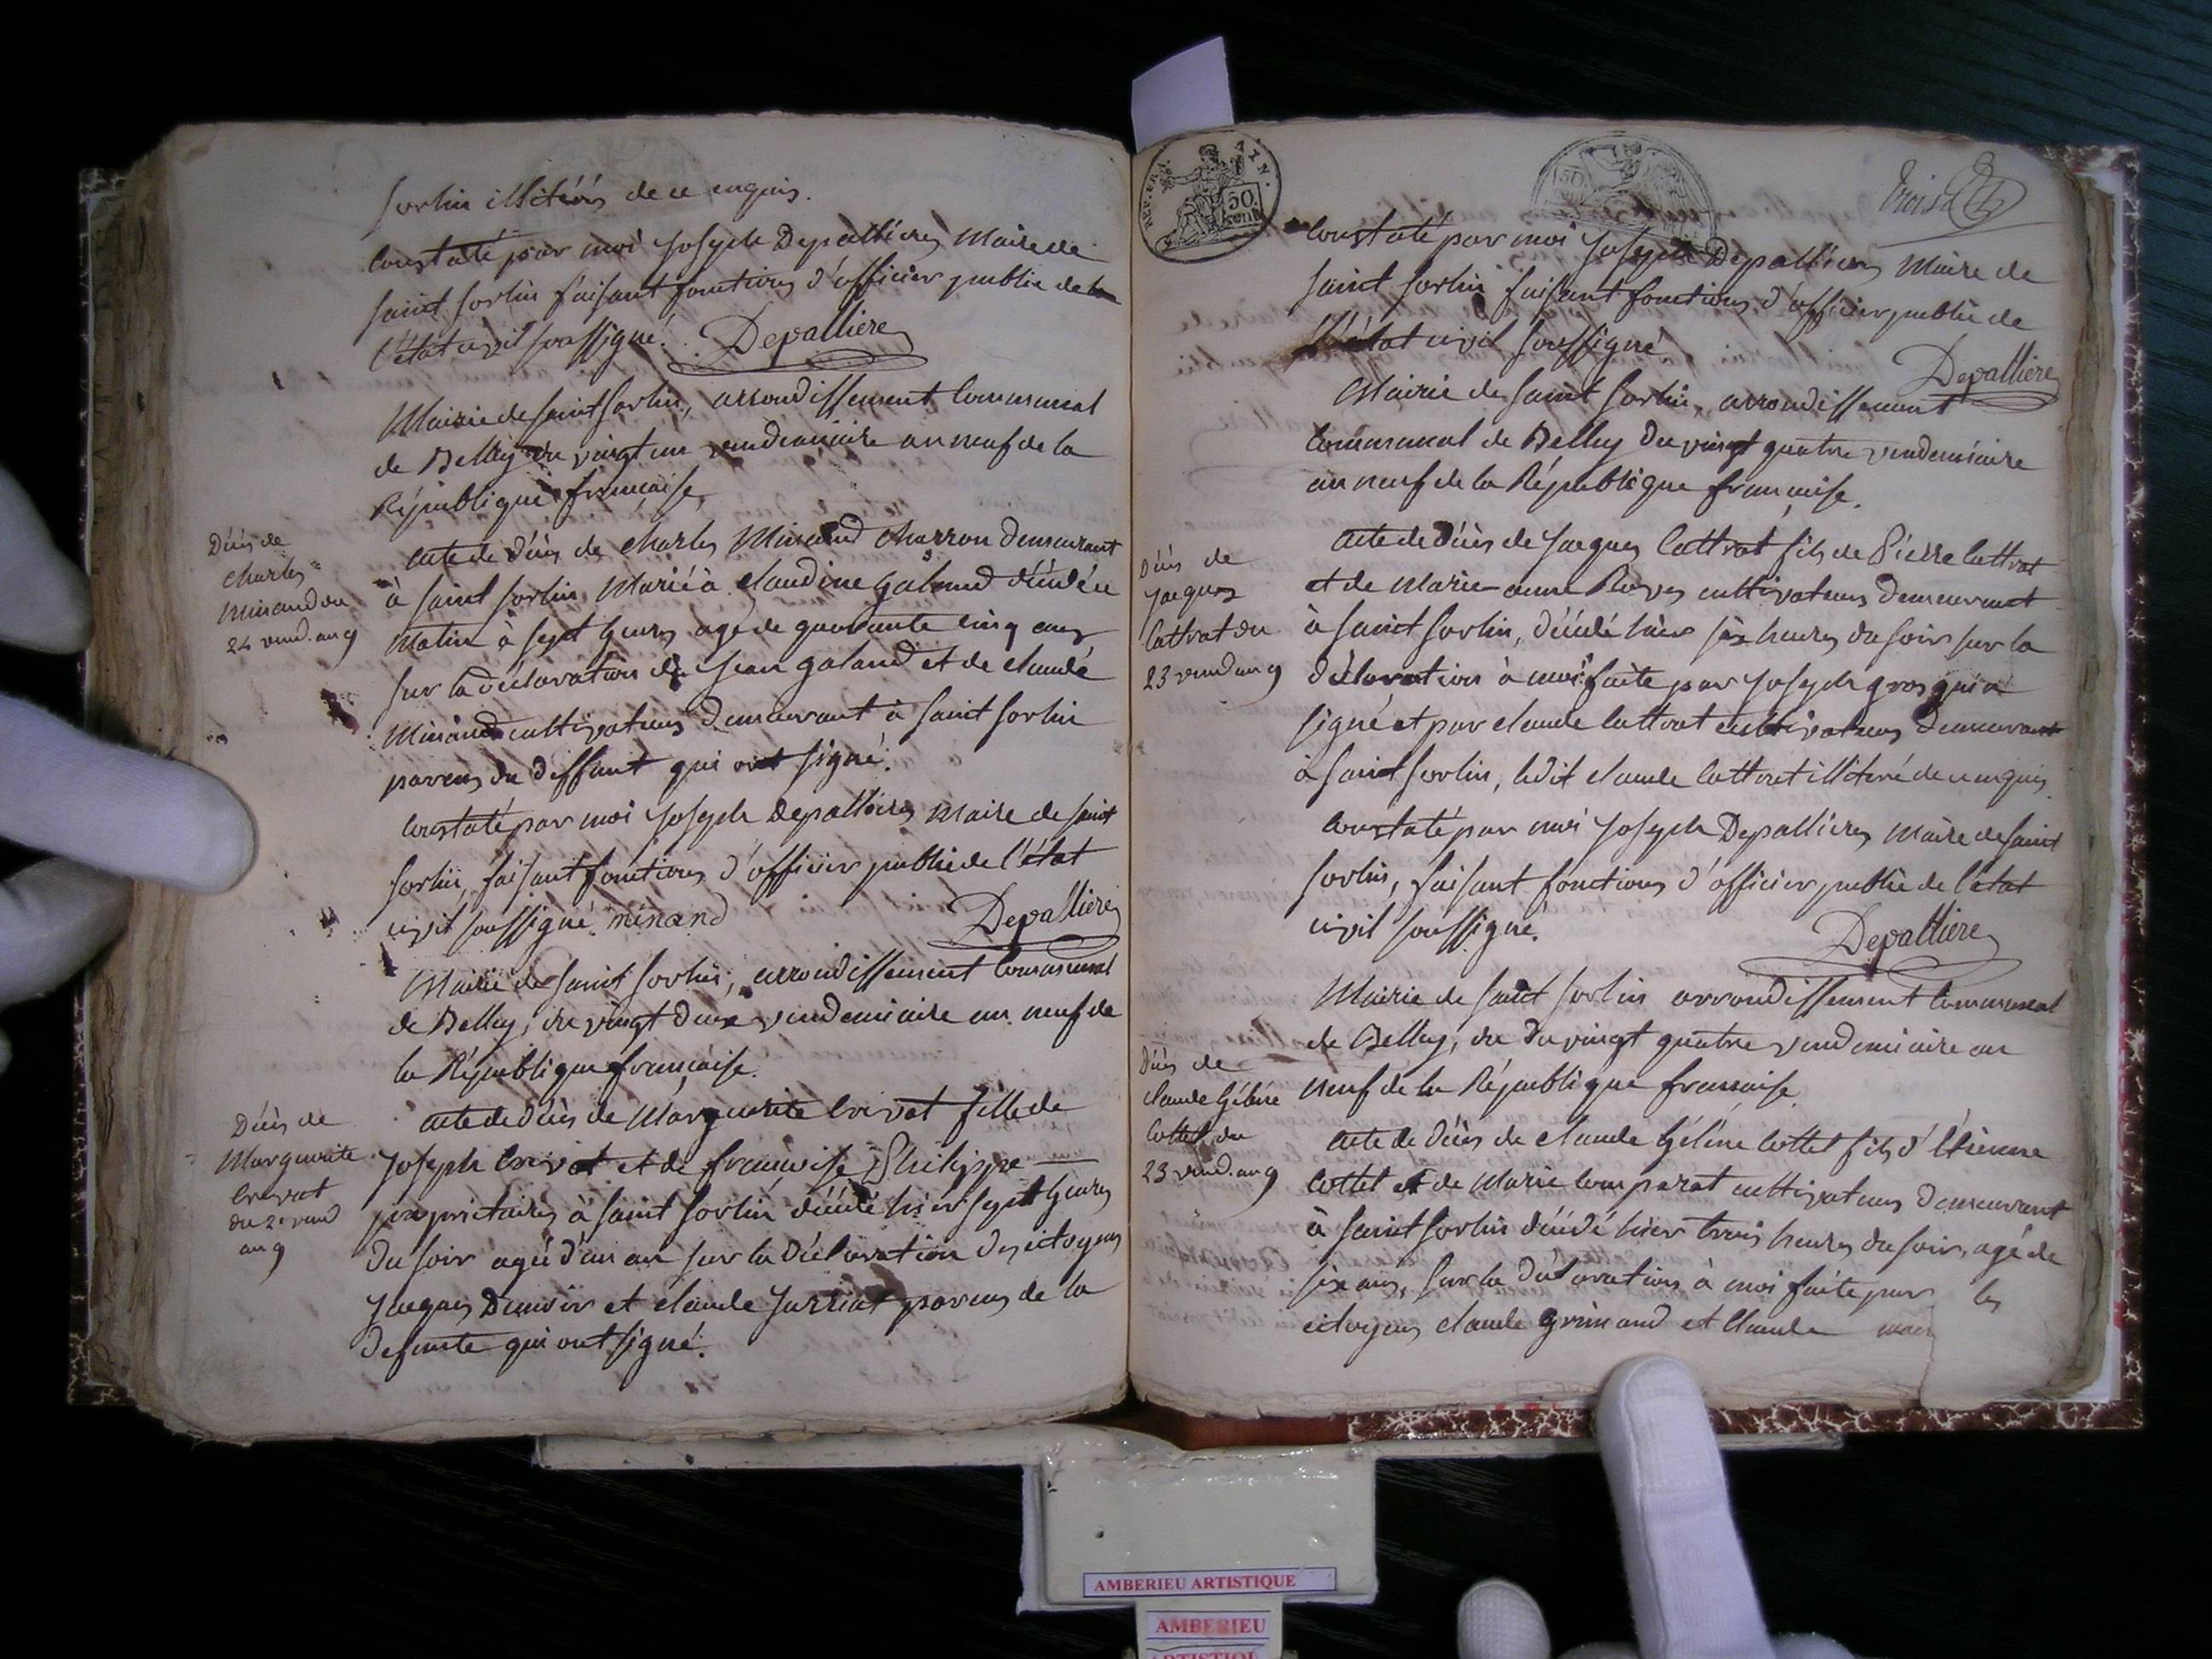 Sorlin illiterés de ce enquis.
Constaté par moi Joseph Depallieres Maire de
Saint Sorlin faisant fonctions d'officier public de
l'état civil soussigné. Depalliere
Mairie de Saint Sorlin, arrondissement Communal
de Belley du vingt un vendemiaire an neuf de la
République française,
Décès de
Charles
Minand du
21 vend. an 9
acte de décès de Charles Minand Charron demeurant
à Saint Sorlin, Marié à Claudine Galand décédé ce
Matin à sept heures agé de quarante cinq ans
sur la déclaration de Jean Galand et de claude
Minand cultivateurs demeurant à Saint Sorlin
parens du deffunt qui ont signé.
Constaté par moi Joseph Depallieres Maire de Saint
Sorlin, faisant fonctions d'officier public de l'état
civil soussigné. minand Depalliere
Mairie de Saint Sorlin, arrondissement Communal
de Belley, du vingt deux vendemiaire an neuf de
la République française.
Décès de
Marguerite
Crevat
du 21 vend
an 9
acte de décès de Marguerite Crevat fille de
Joseph Crevat et de françoise Philippe
propriétaires à Saint Sorlin décédé hier sept heures
du soir agée d'un an sur la déclaration des citoyens
Jacques Dunoir et claude Jarriat parens de la
defunte qui ont signé.
REP. FRA. AIN.
50 cent
50
trois
Constaté par moi Joseph Depallieres Maire de
Saint Sorlin faisant fonctions d'officier public de
l'état civil soussigné
Depalliere
Mairie de Saint Sorlin, arrondissement
Communal de Belley du vingt quatre vendemiaire
an neuf de la République française.
Décès de
Jacques
Cattrat du
23 vend an 9
acte de décès de Jacques Cattrat fils de Pierre Cattrat
et de Marie anne cultivateurs demeurant
à Saint Sorlin, décédé hier six heures du soir sur la
déclaration à moi faite par Joseph gros qui a
signé et par claude Cattrat cultivateurs demeurant
à Saint Sorlin, ledit claude Cattrat illiteré de ce enquis.
Constaté par moi Joseph Depallieres Maire de Saint
Sorlin, faisant fonctions d'officier public de l'état
civil soussigné.
Depalliere
Mairie de Saint Sorlin arrondissement Communal
de Belley, du du vingt quatre vendemiaire an
neuf de la République française.
Décès de
claude héléne
Cottet du
23 vend. an 9
acte de décès de claude héléne Cottet fils d'Etienne
Cottet et de Marie Comparat cultivateurs demeurant
à Saint Sorlin décédé hier trois heures du soir, agé de
six ans, sur la déclaration à moi faite par les
citoyens claude grimand et Claude
AMBERIEU ARTISTIQUE
AMBERIEU
ARTISTIQUE